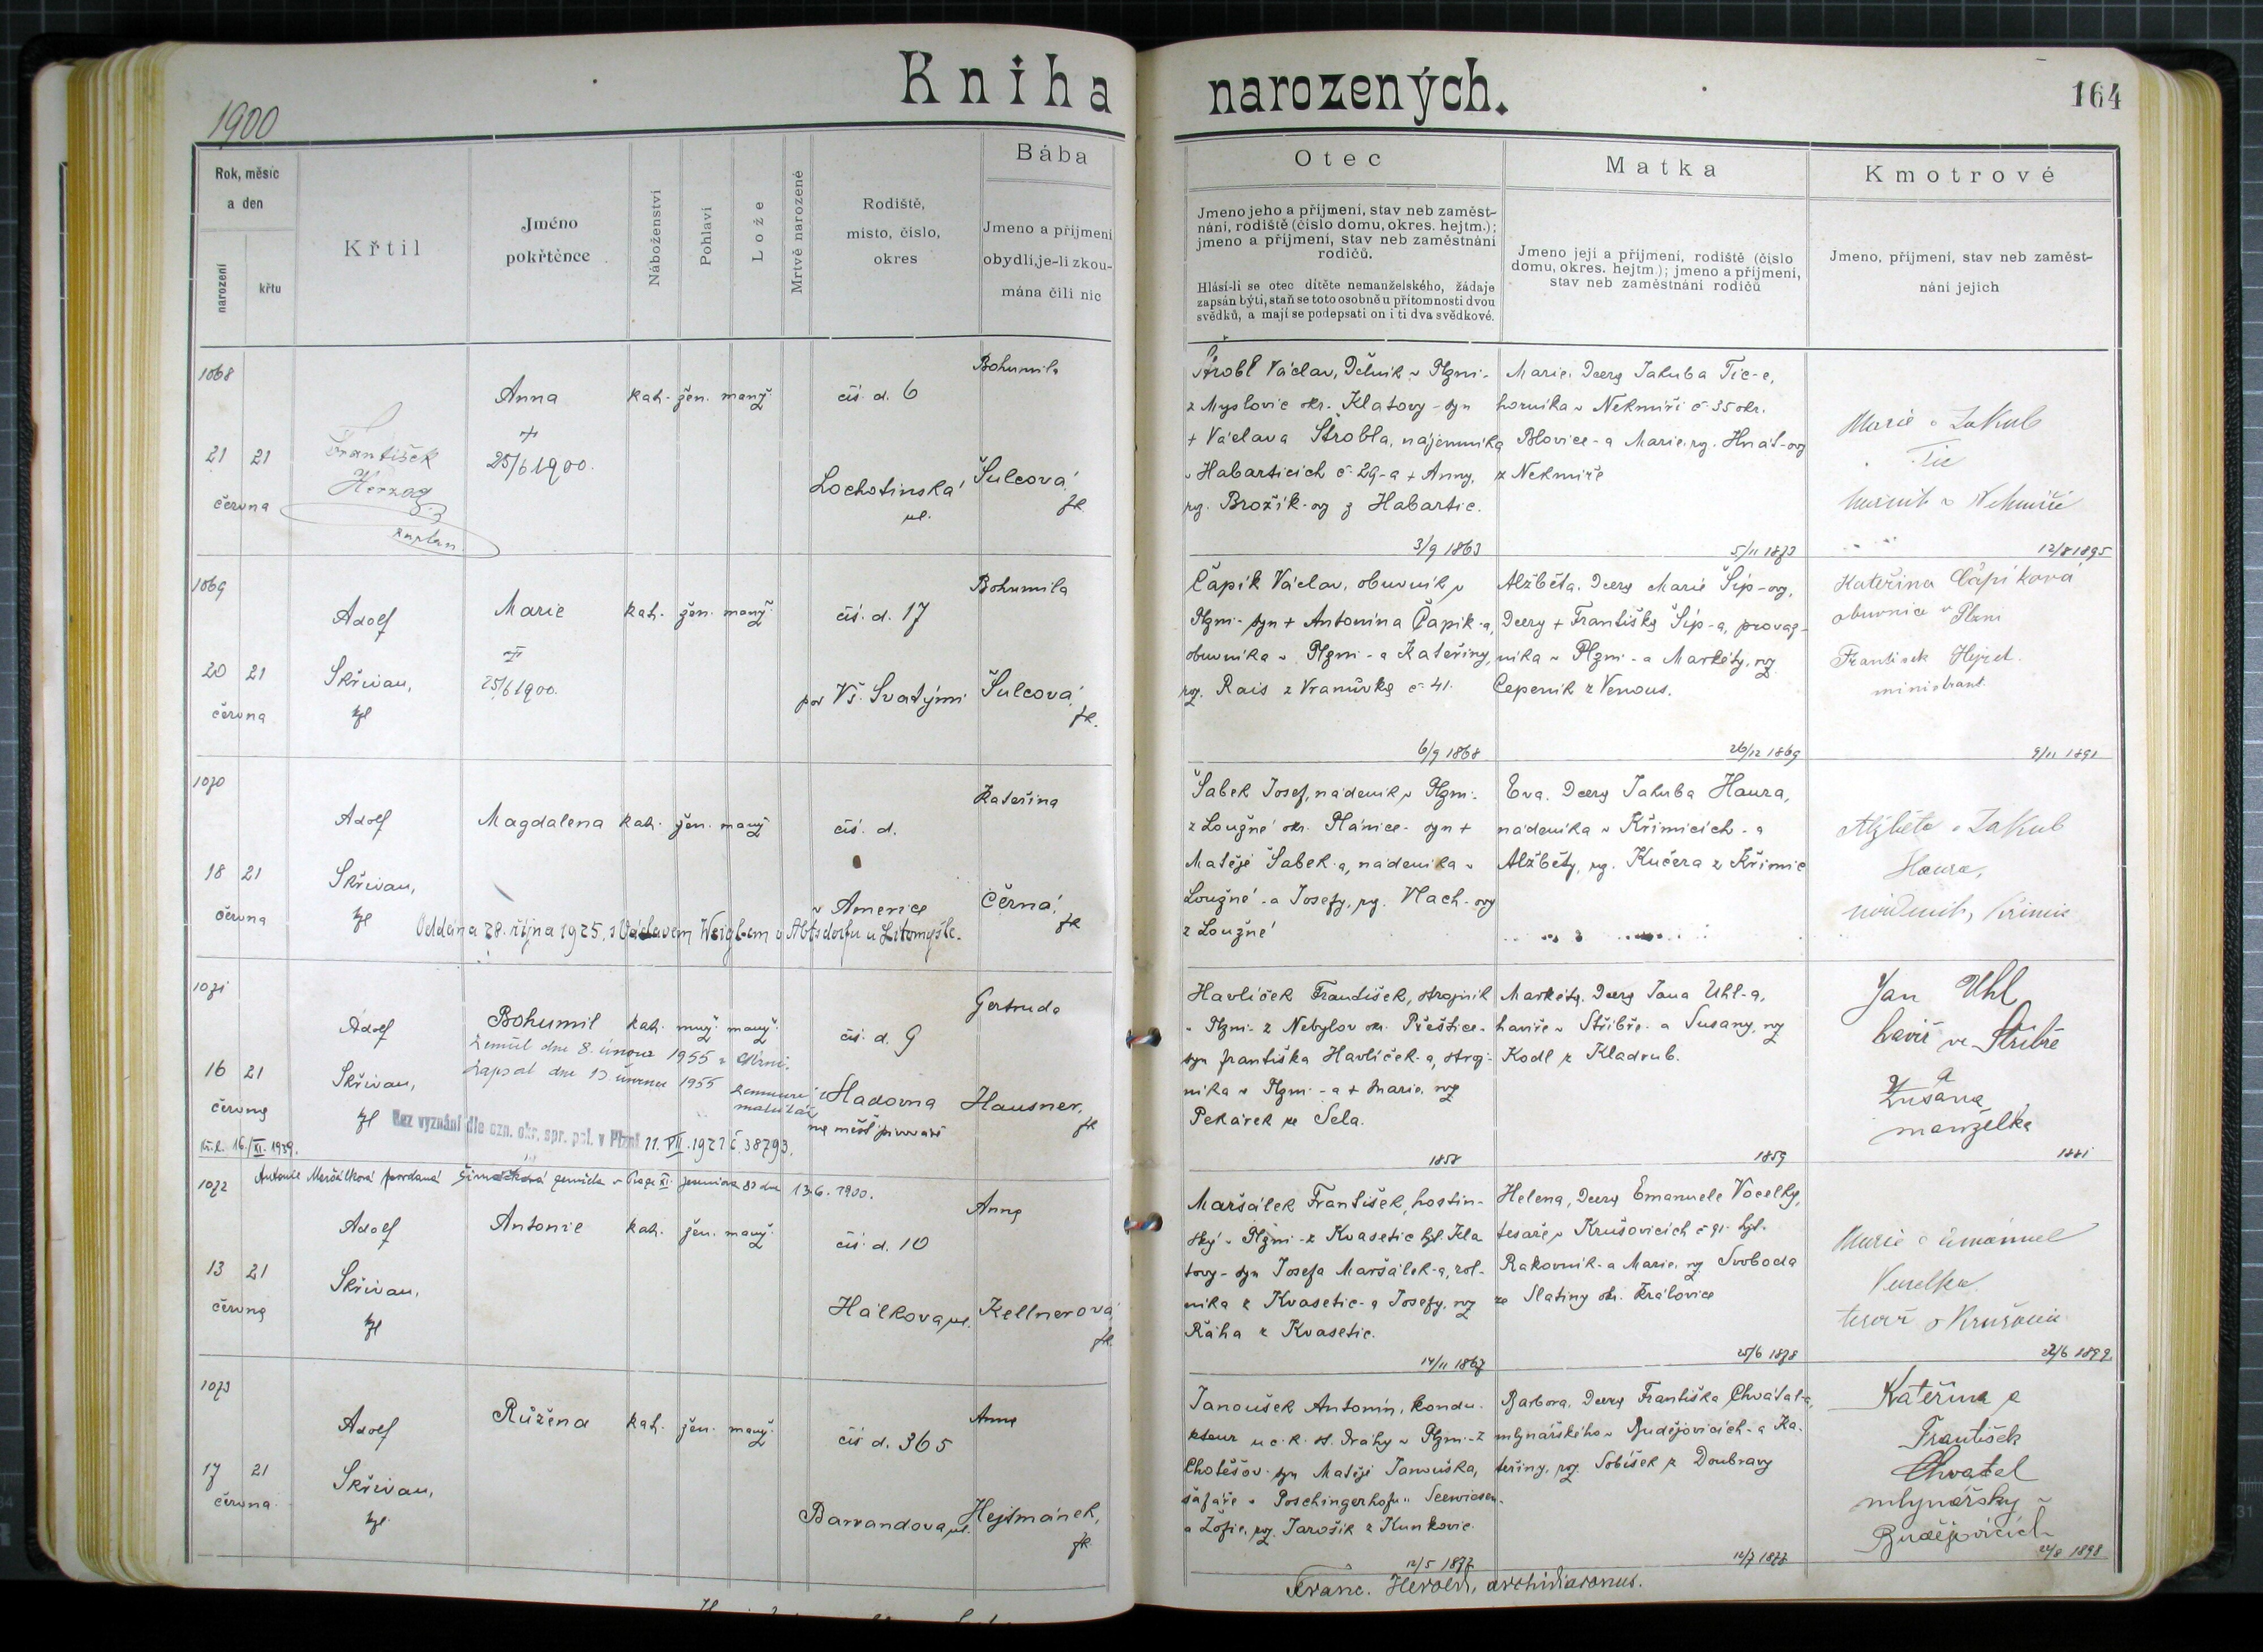 Kniha narozených.
1900
164
Rok, měsíc a den
narození
křtu
Křtil
Jméno pokřtěnce
Náboženství
Pohlaví
Lože
Mrtvě narozené
Rodiště, místo, číslo, okres
Bába
Jmeno a příjmení
obydlí, je-li zkou-
mána čili nic
Otec
Jmeno jeho a příjmení, stav neb zaměst-
nání, rodiště (číslo domu, okres. hejtm.);
jmeno a příjmení, stav neb zaměstnání
rodičů.
Hlásí-li se otec dítěte nemanželského, žádaje
zapsán býti, staň se toto osobně u přítomnosti dvou
svědků, a mají se podepsati on i ti dva svědkové.
Matka
Jmeno její a příjmení, rodiště (číslo
domu, okres. hejtm.); jmeno a příjmení,
stav neb zaměstnání rodičů
Kmotrové
Jmeno, příjmení, stav neb zaměst-
nání jejich
1068
21 21
června
František
Herzog
kaplan
Anna
+
25/6 1900.
kat. žen. manž.
čís. d. 6
Lochotínská
ul.
Bohumila
Šulcová,
zk.
Štrobl Václav, Dělník v Plzni-
z Myslovic okr. Klatovy - syn
+ Václava Štrobla, nájemníka
v Habarticích č. 29 - a + Anny,
roz. Brožík-ov z Habartic.
3/9 1863
Marie, Dcera Jakuba Tic-e,
horníka v Nekmíři č 35 okr.
Blovice - a Marie, roz. Hnát-ov
z Nekmíře
5/11 1873
Marie a Jakub
Tic
horník v Nekmíři
12/8 1895
1069
20 21
června
Adolf
Skřivan,
kpl
Marie
25/6 1900.
kat. žen. manž.
čís. d. 17
pod Vš. Svatými
Bohumila
Šulcová,
zk.
Čapík Václav, obuvník v
Plzni - syn + Antonína Čapík-a,
obuvníka v Plzni - a Kateřiny,
roz. Rais z Vranůvky č. 41.
6/9 1868
Alžběta, Dcera Marie Šíp-ov,
Dcery + Františka Šíp-a, provaz-
níka v Plzni - a Markéty, roz
Čepeník z Venous.
26/12 1869
Kateřina Čápíková
obuvnice v Plzni
František Hejret
ministrant.
9/11 1891
1070
18 21
června
Adolf
Skřivan,
kpl
Magdalena
kat. žen. manž
čís. d.
v Americe
Kateřina
Černá,
zk
Oddána 28. října 1925, s Václavem Weiglem v Abtsdorfu u Litomyšle.
Šabek Josef, nádeník v Plzni-
z Loužné okr. Plánice - syn +
Matěje Šabek-a, nádeníka v
Loužné - a Josefy, roz. Vlach-ov
z Loužné
Eva, Dcera Jakuba Haura,
nádeníka v Křimicích - a
Alžběty, roz. Kučera z Křimic
Alžběta a Jakub
Haura,
nádeník, Křimice
1071
16 21
června
Adolf
Skřivan,
kpl
Bohumil
kat. muž. manž.
Zemřel dne 8. února 1955 v Plzni.
Zapsal dne 13. února 1955
Bez vyznání dle ozn. okr. spr. pol. v Plzni 11. VII. 1921 č. 38793.
16./XI. 1939.
čís. d. 9
Sladovna
na měšť. pivováře
Gertruda
Hausner,
zk
Havlíček František, strojník
v Plzni - z Nebylov okr. Přeštice -
syn Františka Havlíček-a, stroj-
níka v Plzni - a + Marie, roz
Pekárek ze Sela.
1858
Markéta, Dcera Jana Uhl-a,
havíře v Stříbře - a Susany, roz
Kodl z Kladrub.
1859
Jan Uhl
havíř ve Stříbře
a
Zusana
manželka
1881
1072
Antonie Maršálková provdaná Šimáčková zemřela v Praze XI. 13.6. 1900.
13 21
června
Adolf
Skřivan,
kpl
Antonie
kat. žen. manž.
čís. d. 10
Hálkova ul.
Anna
Kellnerová,
zk.
Maršálek František, hostin-
ský v Plzni - z Kvasetic hjt. Kla
tovy - syn Josefa Maršálek-a, rol-
níka z Kvasetic - a Josefy, roz
Řáha z Kvasetic.
14/11 1867
Helena, Dcera Emanuele Vocelky,
tesaře v Krušovicích č 91 hjt.
Rakovník - a Marie, roz Svoboda
ze Slatiny okr. Kralovice
25/6 1878
Marie a Emánuel
Vocelka
tesař v Krušovic
22/6 1899
1073
17 21
června
Adolf
Skřivan,
kpl
Růžena
kat. žen. manž.
čís d. 365
Barrandova ul.
Anna
Hejtmánek,
zk.
Janoušek Antonín, kondu-
kteur u c. k. st. Dráhy v Plzni - z
Chotěšov - syn Matěje Janouška,
šafáře v Poschingerhofu
a Žofie, roz. Jarošík z Kunkovic.
12/5 1877
Barbora, Dcera Františka Chvátal-a,
mlynářského v Budějovicích - a Ka-
teřiny, roz. Sobíšek z Doubravy
12/7 1877
Kateřina a
František
Chvatal
mlynářský v
Budějovicích
24/8 1898
Franc. Herold, archidiaconus.